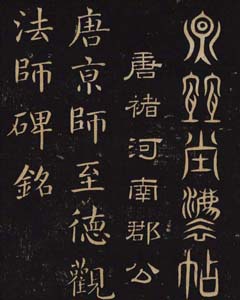 堂灋帖
唐褚河南郡公
唐亰師至德觀
法師碑銘